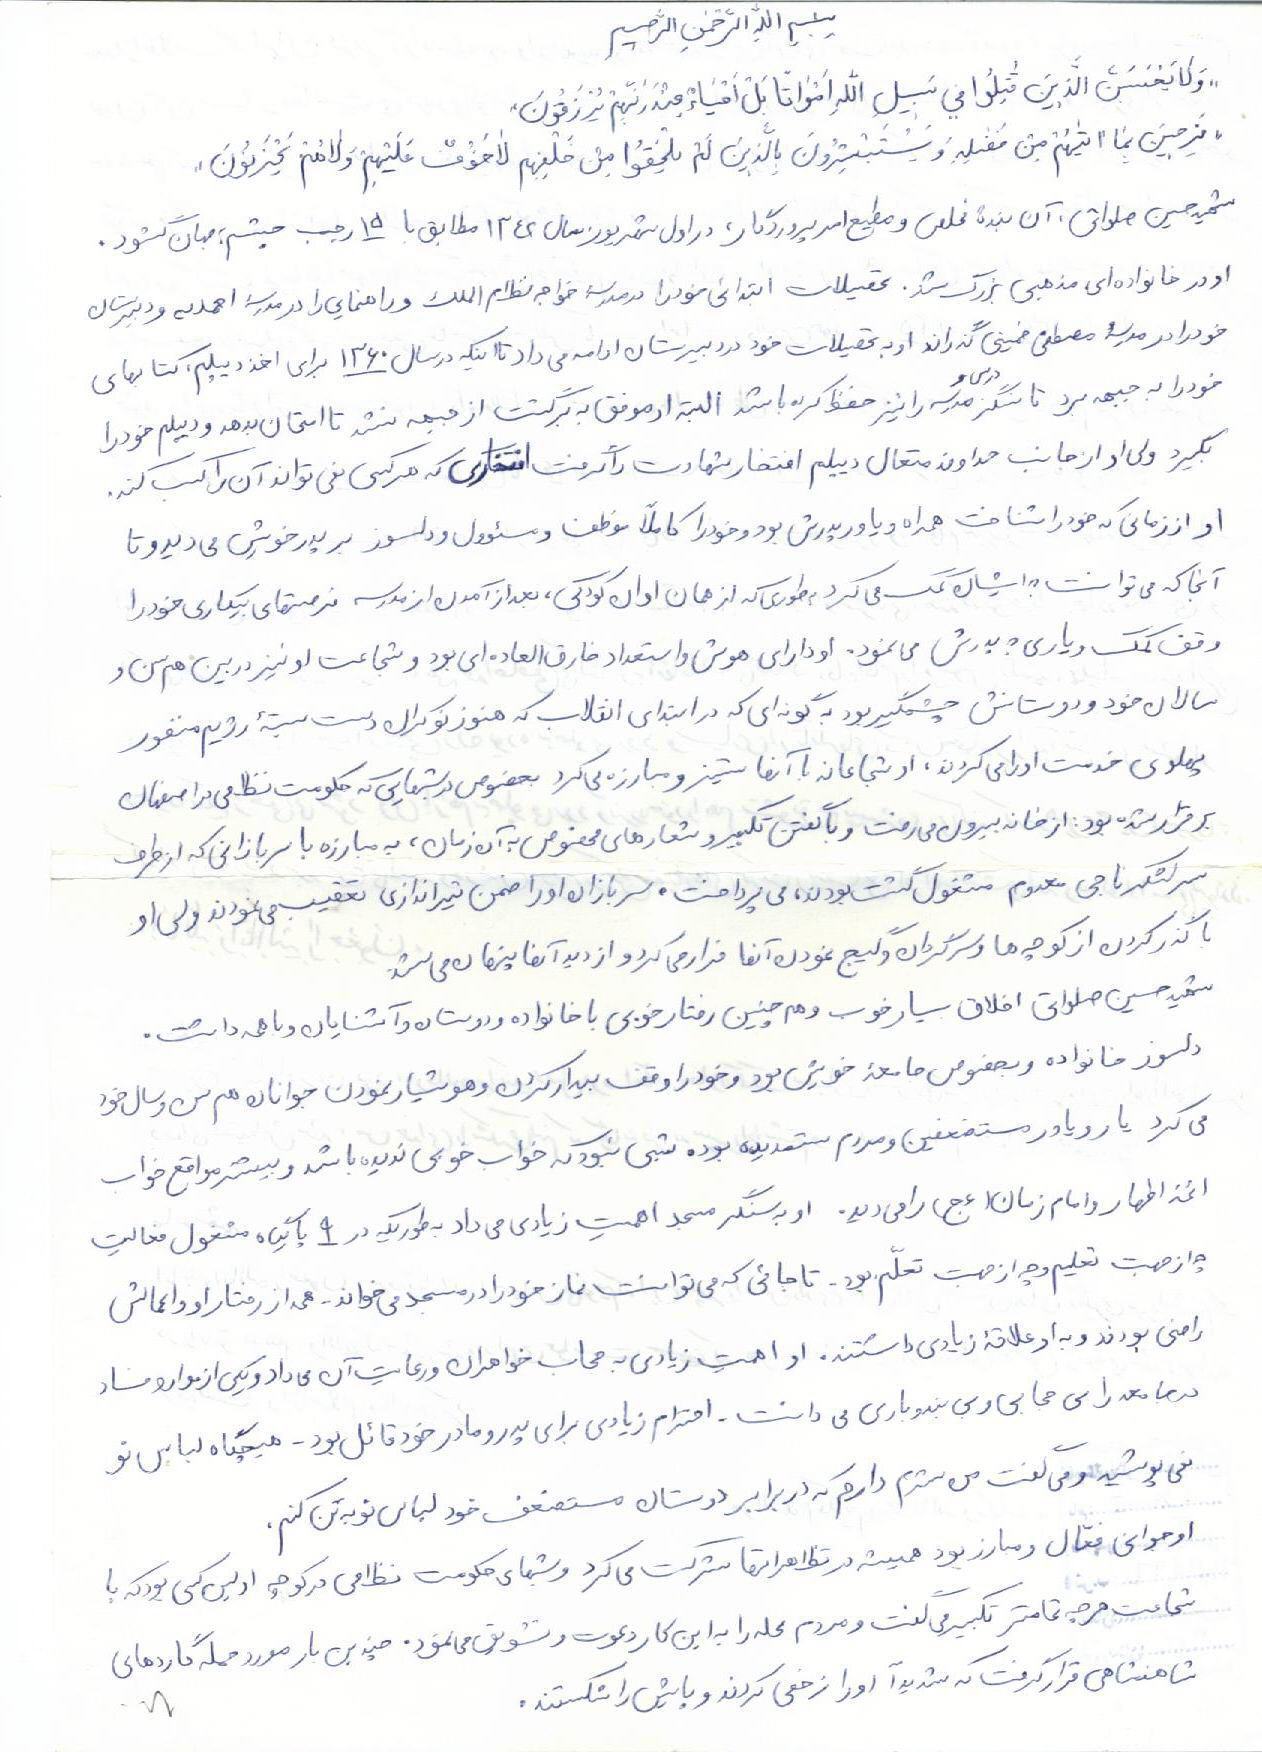 بِسْمِ اللهِ الرَّحْمٰنِ الرَّحیمِ
«وَلَا تَحْسَبَنَّ الَّذِینَ قُتِلُوا فِي سَبِیلِ اللّهِ أَمْوَاتًا بَلْ أَحْیَاءٌ عِنْدَ رَبِّهِمْ یُرْزَقُونَ»
«فَرِحِینَ بِمَا اٰتٰیهُمْ مِنْ فَضْلِهِ وَ یَسْتَبْشِرُونَ بِالَّذِینَ لَمْ یَلْحَقُوا مِنْ خَلْفِهِم لاٰخَوْفٌ عَلَیْهِمْ وَلاٰهُمْ یَحْزَنُونَ»
شهید حسین صلواتی، آن بندهٔ مخلص و مطیع امر پروردگار، در اول شهریور سال ۱۳۴۲ مطابق با رجب چشم به جهان گشود.
او در خانواده‌ای مذهبی بزرگ شد. تحصیلات ابتدائی خود را در مدرسهٔ خواجه نظام الملک و راهنمایی را در مدرسهٔ احمدیه و دبیرستان
خود را در مدرسهٔ مصطفی خمینی گذراند او به تحصیلات خود در دبیرستان ادامه می داد تا اینکه در سال ۱۳۶۰ برای اخذ دیپلم، کتابهای
خود را به جبهه برد تا سنگر درس و مدرسه را نیز حفظ کرده باشد البته او موفق به برگشت از جبهه نشد تا امتحان بدهد و دیپلم خود را
بگیرد ولی او از جانب خداوند متعال دیپلم افتخار شهادت را گرفت افتخاری که هر کسی نمی تواند آن را کسب کند.
او از زمانی که خود را شناخت همراه و یاور پدرش بود و خود را کاملاً موظف و مسئوول و دلسوز بر پدر خویش می دید و تا
آنجا که می توانست به ایشان کمک می کرد بطوری که از همان اوان کودکی، بعد از آمدن از مدرسه فرصتهای بیکاری خود را
وقف کمک و یاری به پدرش می نمود. او دارای هوش و استعداد خارق العاده ای بود و شجاعت او نیز در بین هم سن و
سالان خود و دوستانش چشمگیر بود به گونه ای که در ابتدای انقلاب که هنوز نوکران دست بستهٔ رژیم منفور
پهلوی خدمت او را می کردند، او شجاعانه با آنها ستیز و مبارزه می کرد بخصوص در شبهایی که حکومت نظامی در اصفهان
برقرار شده بود، از خانه بیرون می رفت و با گفتن تکبیر و شعارهای مخصوص به آن زمان، به مبارزه با سربازانی که از طرف
سرلشگر ناجی معدوم مشغول گشت بودند، می پرداخت. سربازان او را ضمن تیراندازی تعقیب می نمودند ولی او
با گذر کردن از کوچه ها و سرگردان و گیج نمودن آنها فرار می کرد و از دید آنها پنهان می شد
شهید حسین صلواتی اخلاق بسیار خوب و هم چنین رفتار خوبی با خانواده و دوستان و آشنایان و با همه داشت.
دلسوز خانواده و بخصوص جامعهٔ خویش بود و خود را وقف بیدار کردن و هوشیار نمودن جوانان هم سن و سال خود
می کرد یار و یاور مستضعفین و مردم ستمدیده بود. شبی نبود که خواب خوبی ندیده باشد و بیشتر مواقع خواب
ائمهٔ اطهار و امام زمان (عج) را می دید. او به سنگر مسجد اهمیت زیادی می داد به طوریکه در ۹ پایگاه مشغول فعالیت
چه از جهت تعلیم و چه از جهت تعلّم بود - تا جائی که می توانست نماز خود را در مسجد می خواند - همه از رفتار او و اعمالش
راضی بودند و به او علاقهٔ زیادی داشتند. او اهمیت زیادی به حجاب خواهران و رعایت آن می داد و یکی از موارد فساد
در جامعه را بی حجابی و بی بندوباری می دانست - احترام زیادی برای پدر و مادر خود قائل بود - هیچگاه لباس نو
نمی پوشید و می گفت من شرم دارم که در برابر دوستان مستضعف خود لباس نو به تن کنم.
او جوانی فعّال و مبارز بود همیشه در تظاهراتها شرکت می کرد و شبهای حکومت نظامی در کوچه اولین کسی بود که با
شجاعت هر چه تمامتر تکبیر می گفت و مردم محله را به این کار دعوت و تشویق می نمود. چندین بار مورد حمله گاردهای
شاهنشاهی قرار گرفت که شدیداً او را زخمی کردند و پایش را شکستند.